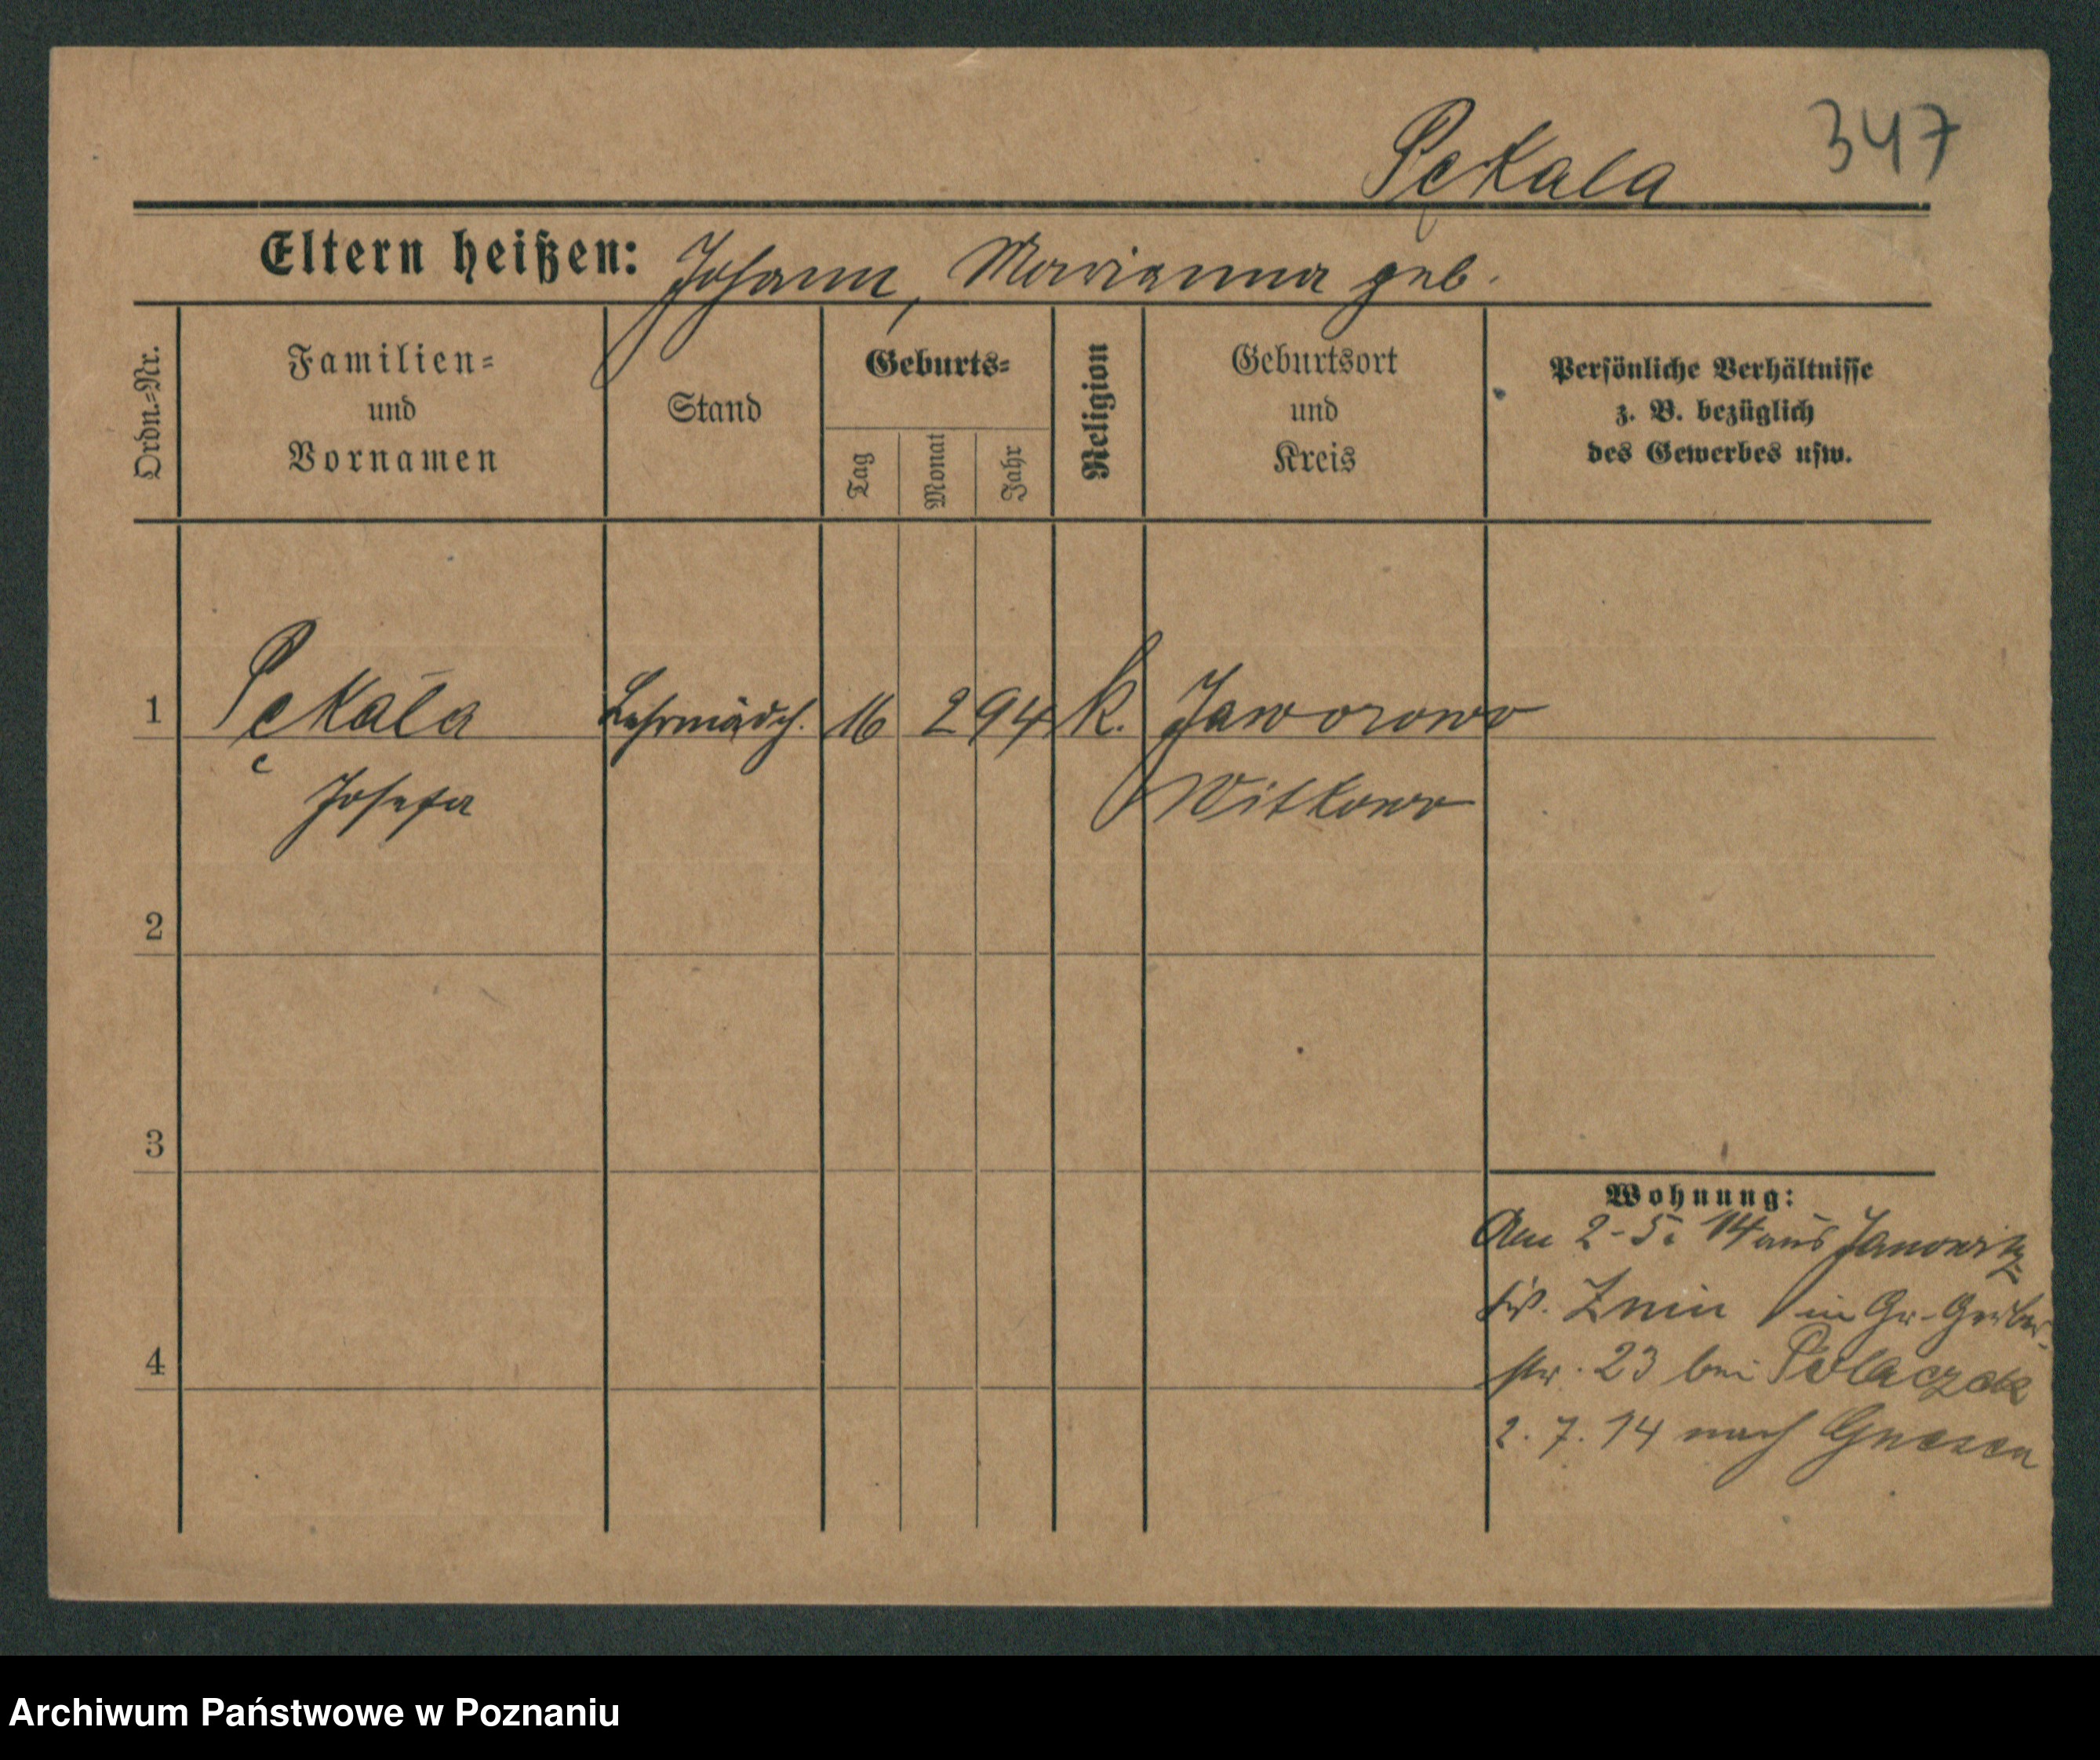 347
Pękala
Eltern heißen: Johann, Marianna geb.
Ordn.-Nr.
Familien-
und
Vornamen
Stand
Geburts-
Tag
Monat
Jahr
Religion
Geburtsort
und
Kreis
Persönliche Verhältnisse
z. B. bezüglich
des Gewerbes usw.
1 Pękala Lehrmädch. 16 2 94 k. Jaworowo
Josefa Witkowo
2
3
4
Wohnung:
Am 2-5. 14 aus Janowitz
Znin in Gr. Gerber-
str. 23 bei
2. 7. 14 nach Gnesen
Archiwum Państwowe w Poznaniu